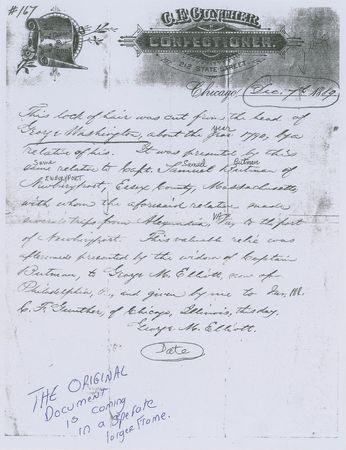 #167
C. F. GUNTHER,
CONFECTIONER.
212 STATE STREET
Chicago, Dec. 7th 1869
This lock of hair was cut from the head of
year
George Washington, about the year 1790, by a
relative of his. It was presented by this
Same Samuel Putnam
same relative to Capt. Samuel Putnam of
NEWBURYPORT
Newburyport, Essex County, Massachusetts,
with whom the aforesaid relative made
several trips from Alexandria, Va, to the port
of Newburyport. This valuable relic was
afterwards presented by the widow of Captain
Putnam, to George M. Elliott, now of
Philadelphia, and given by me to
C. F. Gunther, of Chicago, Illinois, this day,
George M. Elliott.
Date
THE ORIGINAL
Document
is coming
in a seperate
larger Frame.